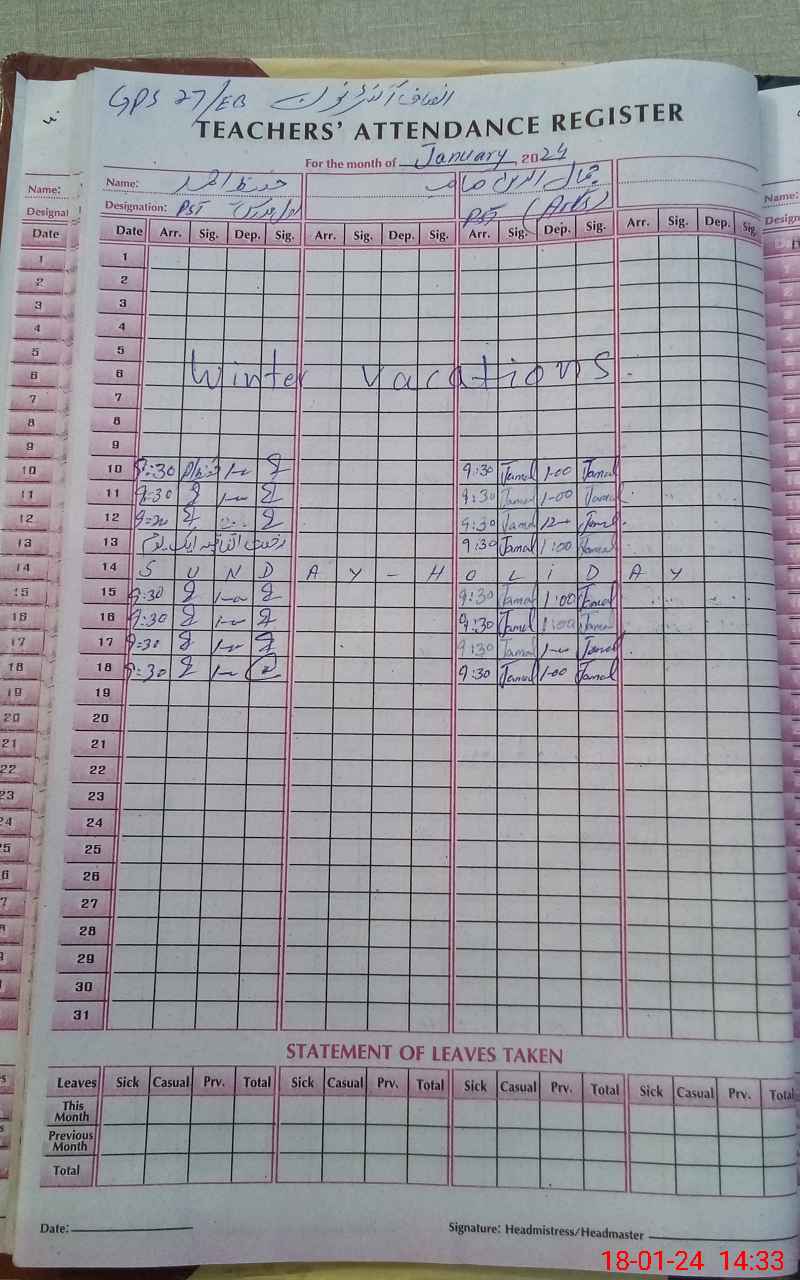 GPS 27/EB انصاف آفٹرنون
TEACHERS' ATTENDANCE REGISTER
For the month of January 2024
Name: حفیظ احمد جمال الدین صاحب
Designation: PST PST (Arts)
Date Arr. Sig. Dep. Sig. Arr. Sig. Dep. Sig. Arr. Sig. Dep. Sig. Arr. Sig. Dep. Sig.
1
2
3
4
5
6 Winter vacations.
7
8
9
10 9:30 1-00 9:30 Jamal 1-00 Jamal
11 9:30 1-00 9:30 Jamal 1-00 Jamal
12 9:30 9:30 Jamal 12-00 Jamal
13 رخصت اتفاقیہ ایک یوم 9:30 Jamal 1:00 Jamal
14 S U N D A Y - H O L i D A Y
15 9:30 1-00 9:30 Jamal 1:00 Jamal
16 9:30 1-00 9:30 Jamal 1:00 Jamal
17 9:30 1-00 9:30 Jamal 1-00 Jamal
18 9:30 1-00 9:30 Jamal 1-00 Jamal
19
20
21
22
23
24
25
26
27
28
29
30
31
STATEMENT OF LEAVES TAKEN
Leaves Sick Casual Prv. Total Sick Casual Prv. Total Sick Casual Prv. Total Sick Casual Prv. Total
This
Month
Previous
Month
Total
Date: Signature: Headmistress/Headmaster
18-01-24 14:33